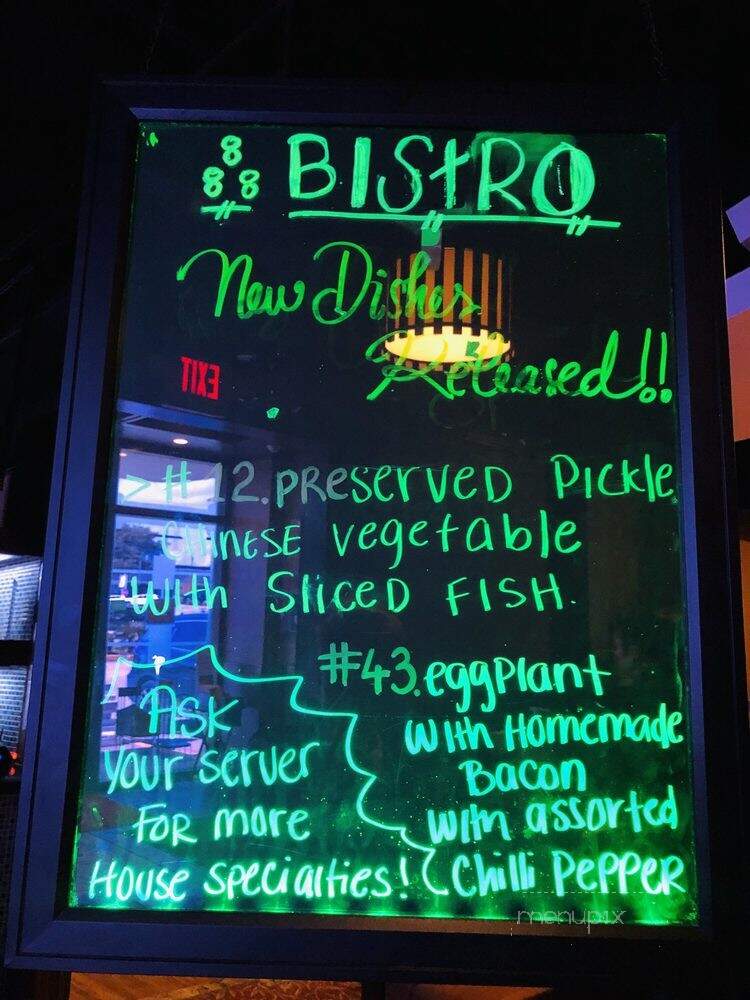 888 BISTRO
New Dishes
Released!!
EXIT
> #12. PREServed Pickle
CHINESE vegetable
With Sliced FISH.
#43. eggplant
With Homemade
Bacon
with assorted
Chilli PePPER
ASK
Your Server
FOR more
House specialties!
menupix